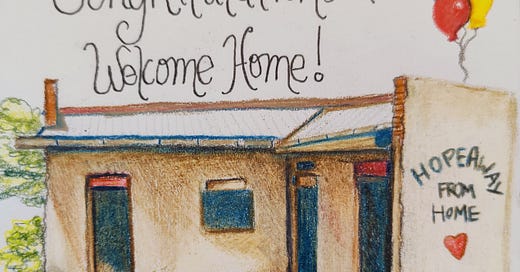 Congratulations
Welcome Home!
HOPEAWAY
FROM
HOME